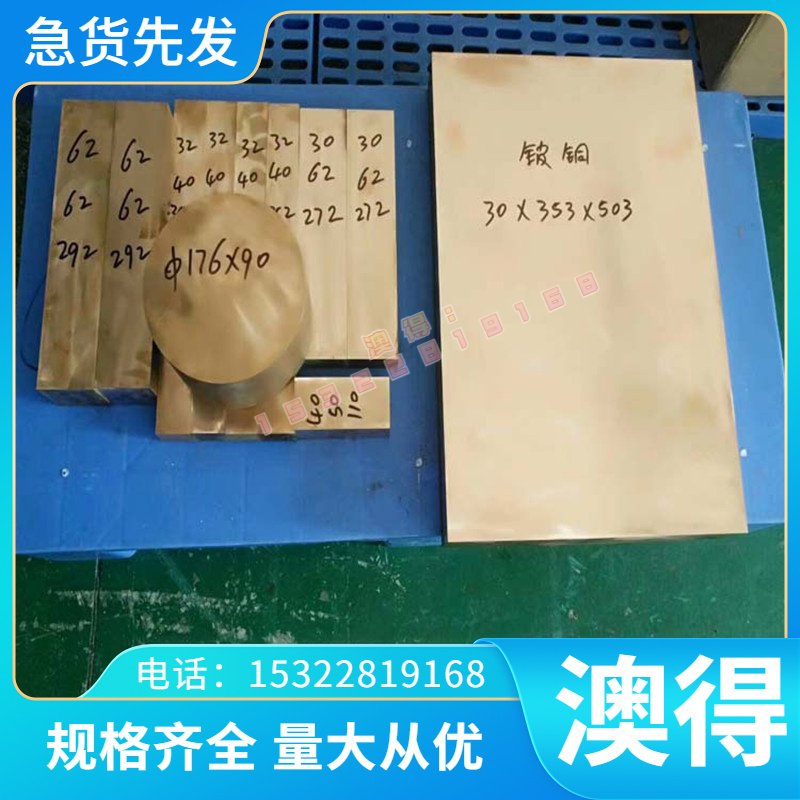 急货先发
62 62 32 32 32 32 30 30
40 40 40 40 62 62
62 62 272 272
292 292
Φ176X90
40
50
110
铍铜
30X353X503
澳得:
15322819168
电话：15322819168
规格齐全 量大从优
澳得